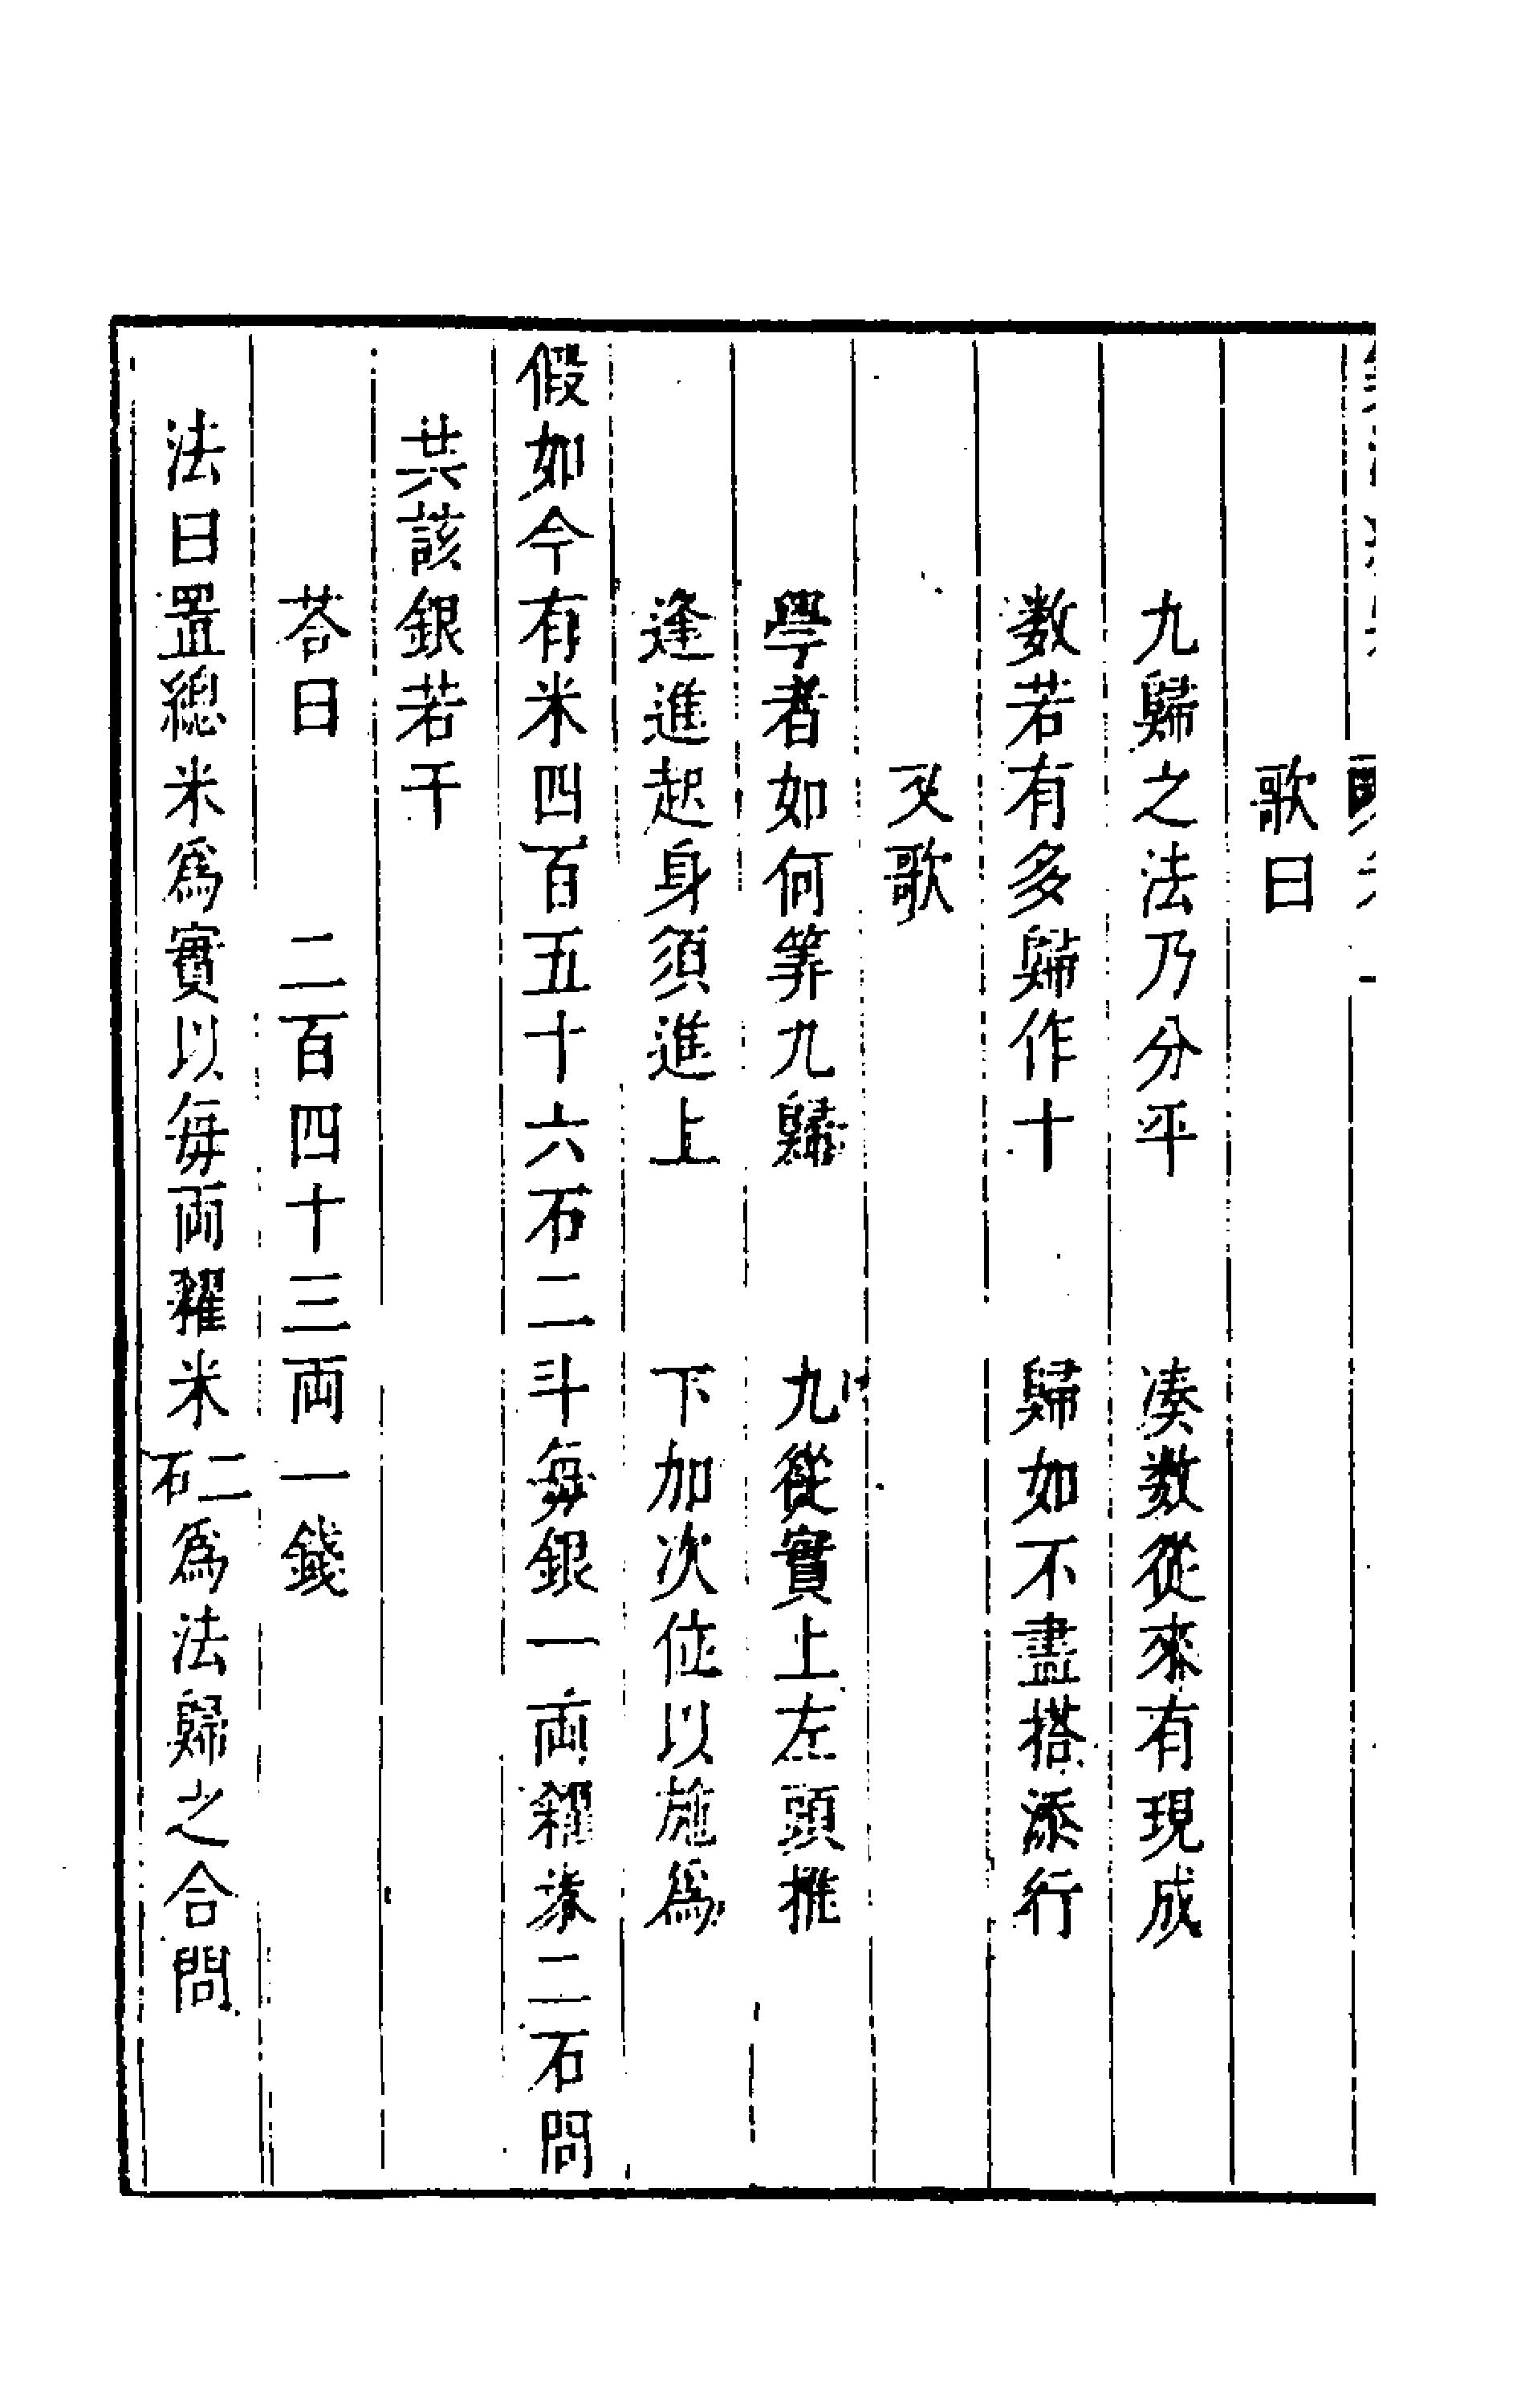 歌曰
九歸之法乃分平　凑数從來有現成
数若有多歸作十　歸如不盡搭添行
又歌
學者如何筭九歸　九從實上左頭推
逢進起身須進上　下加次位以施爲
假如今有米四百五十六石二斗每銀一両糴米二石問
共該銀若干
荅曰　二百四十三両一錢
法曰置總米爲實以每両糴米二石爲法歸之合問